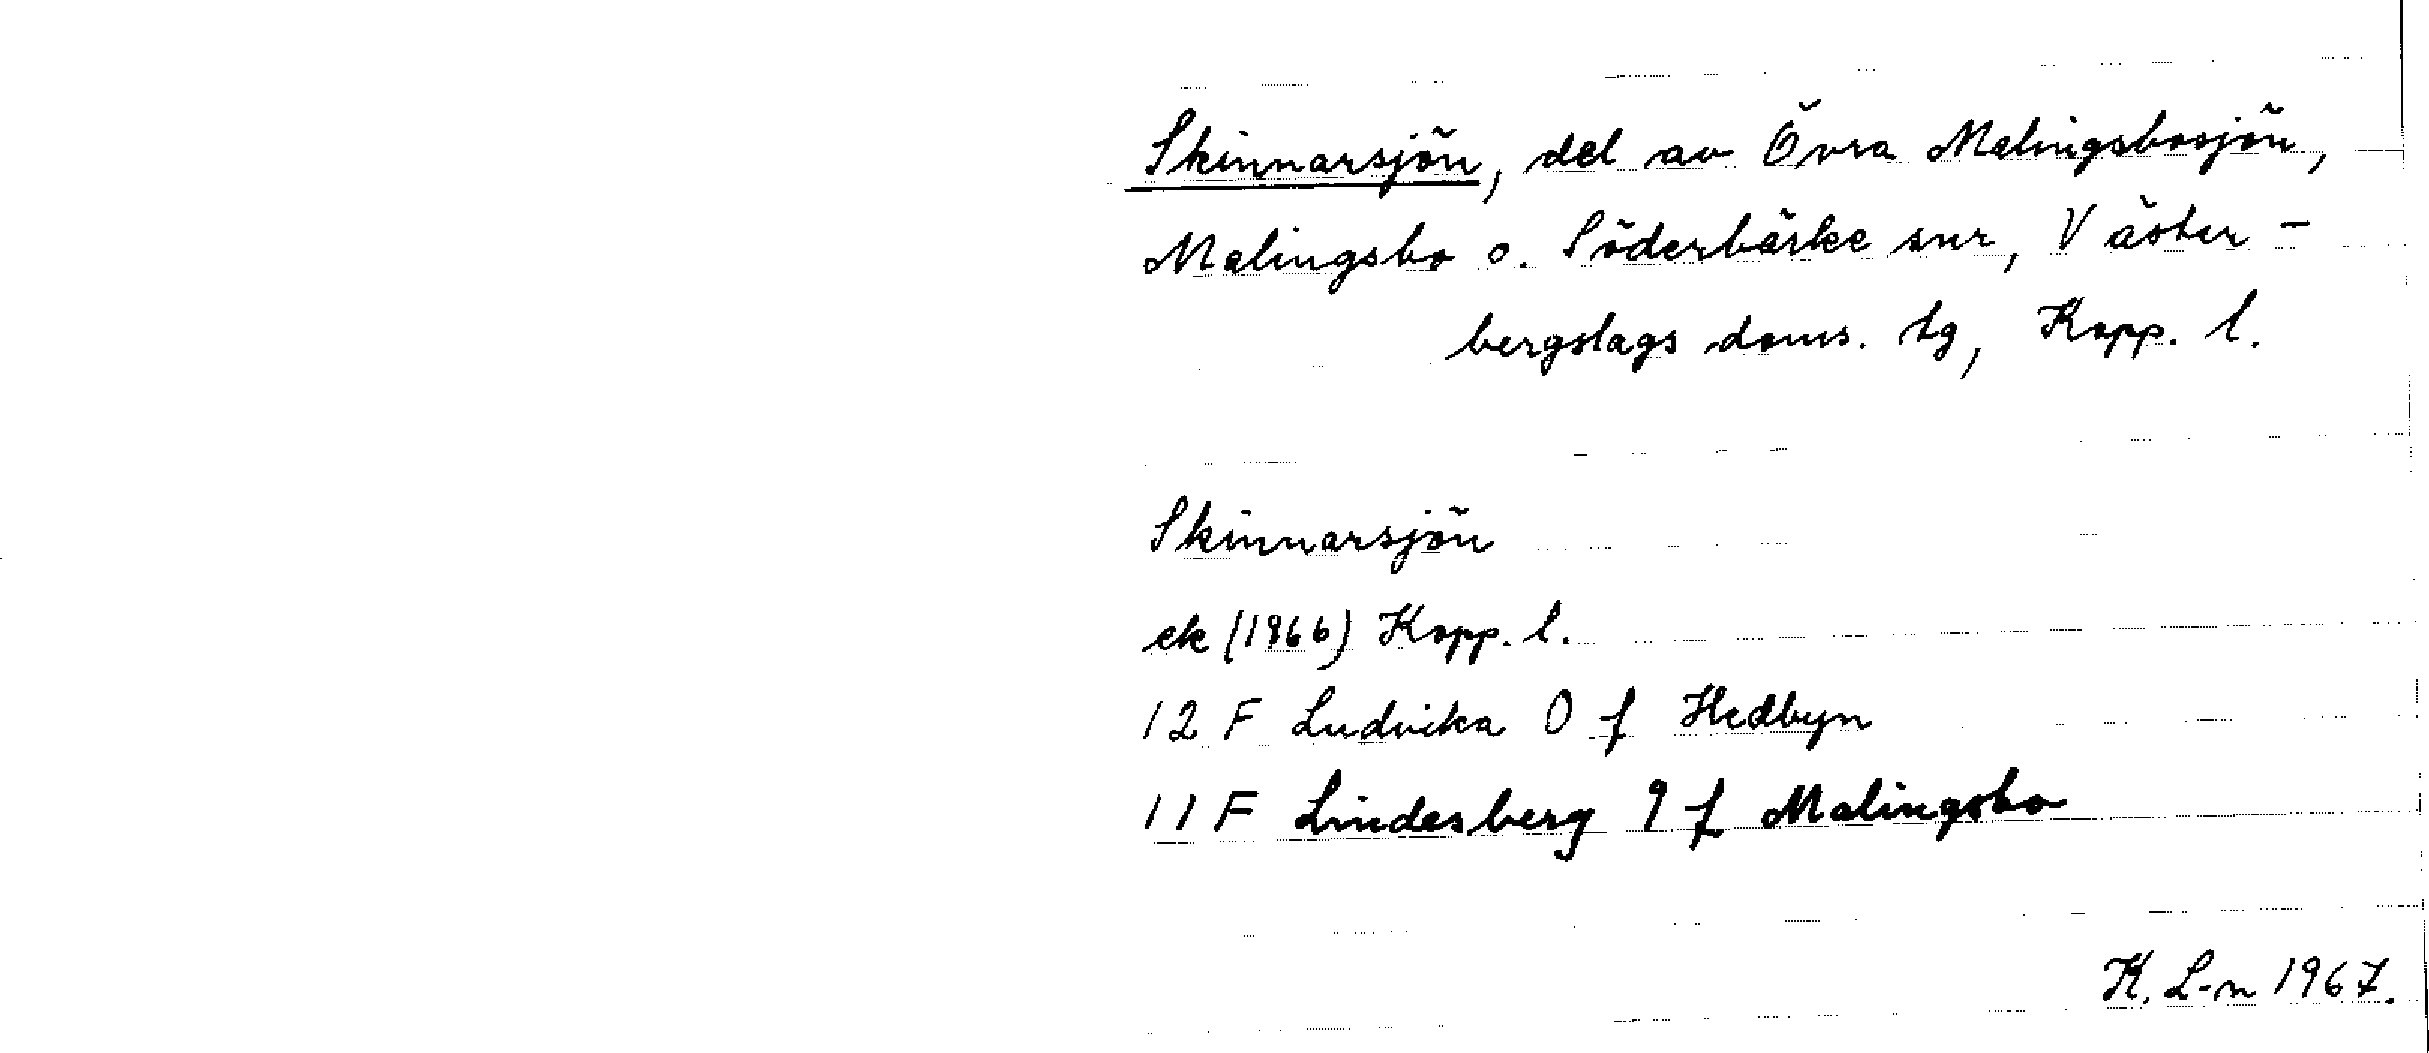 Skinnarsjön, del av Övra Malingsbosjön,
Malingsbo o. Söderbärke snr, Väster-
bergslags doms. tg, Kopp. l.
Skinnarsjön
ek (1966) Kopp. l.
12 F Ludvika 0 f Hedbyn
11 F Lindesberg 9 f Malingsbo
K. L-n 1967.